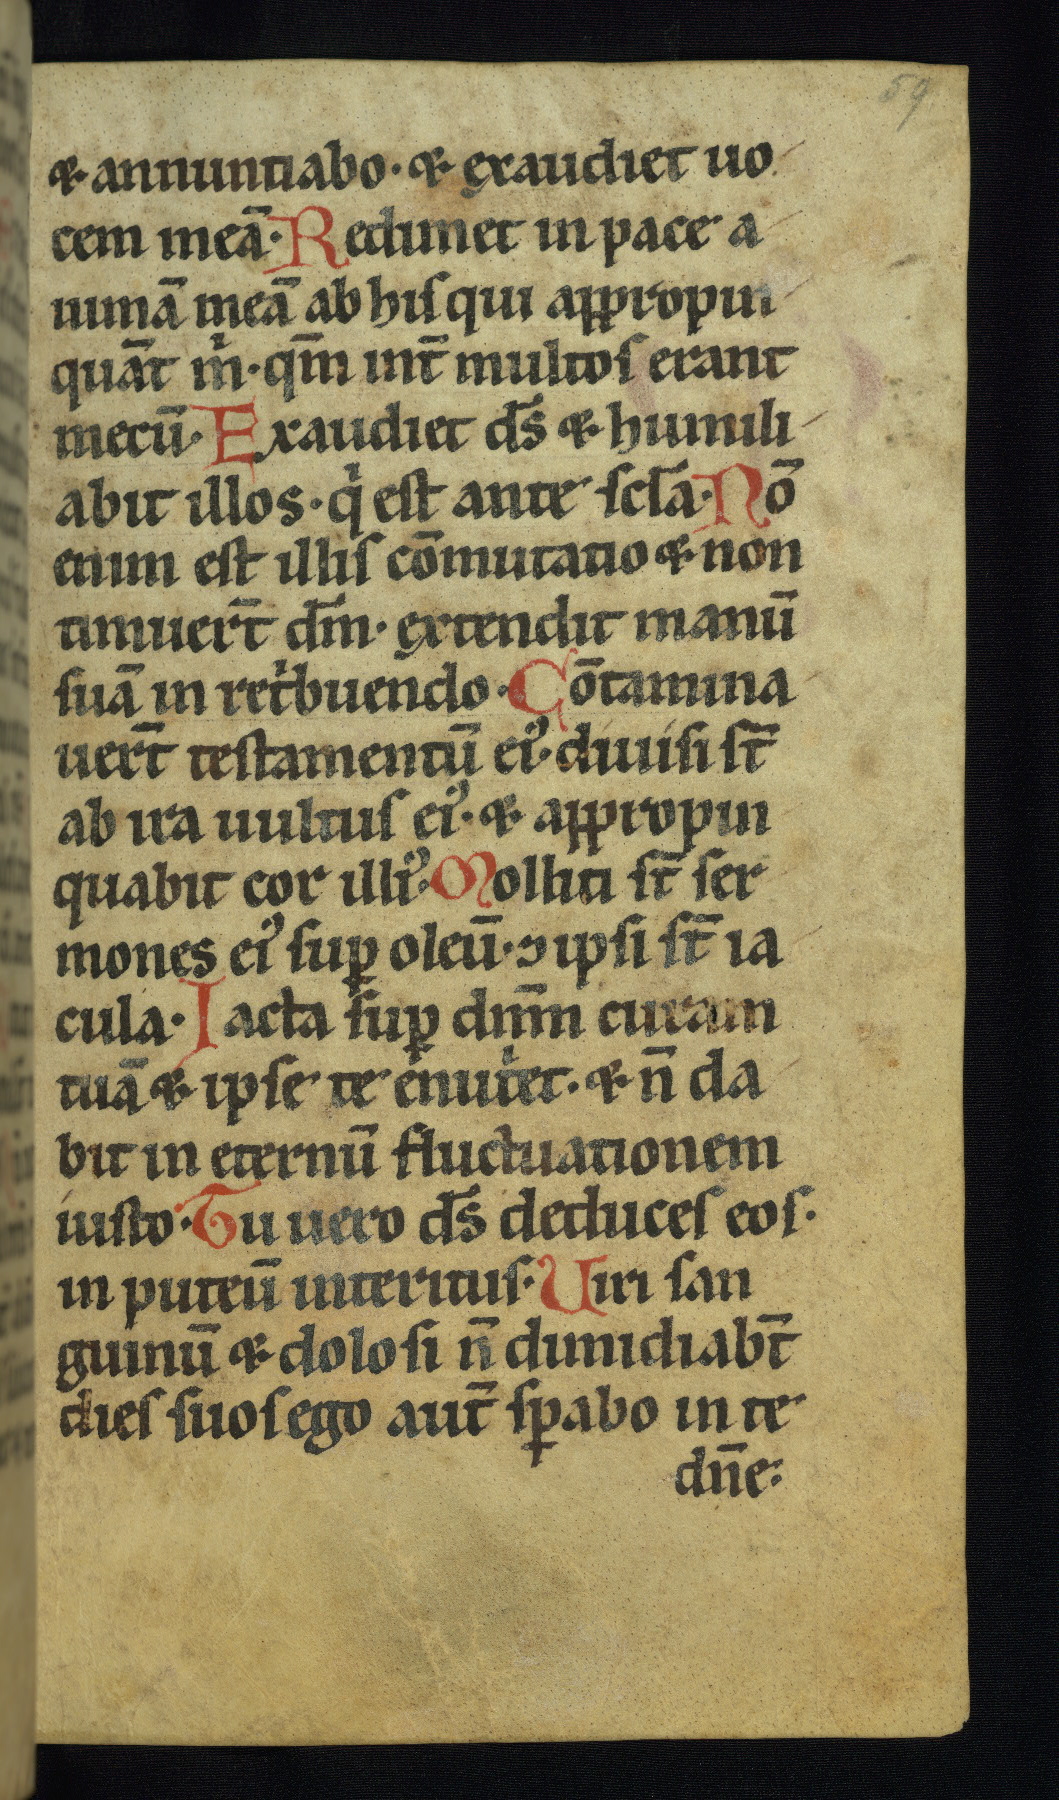 59
⁊ annuntiabo · ⁊ exaudiet uo
cem meā · Redimet in pace a
nimā meā ab his qui appropin
quāt m̄ · qm̄ int̄ multos erant
mecū · Exaudiet ds̄ ⁊ humili
abit illos · qͥ est ante scl̄a · Nō
enim est illis cōmutatio ⁊ non
timuer̄t dm̄ · extendit manū
suā in retͥbuendo · Cōtamina
uer̄t testamentū eiꝰ · diuisi st̄
ab ira uultus eiꝰ · ⁊ appropin
quabit cor illiꝰ · Molliti st̄ ser
mones eiꝰ suꝑ oleū · ⁊ ipsi st̄ ia
cula · Iacta suꝑ dnm̄ curam
tuā ⁊ ipse te enutͥet · ⁊ n̄ da
bit in eternū fluctuationem
iusto · Tu uero ds̄ deduces eos ·
in puteū interitus · Uiri san
guinū ⁊ dolosi n̄ dimidiab̄t
dies suos ego aut̄ sꝑabo in te
dn̄e :